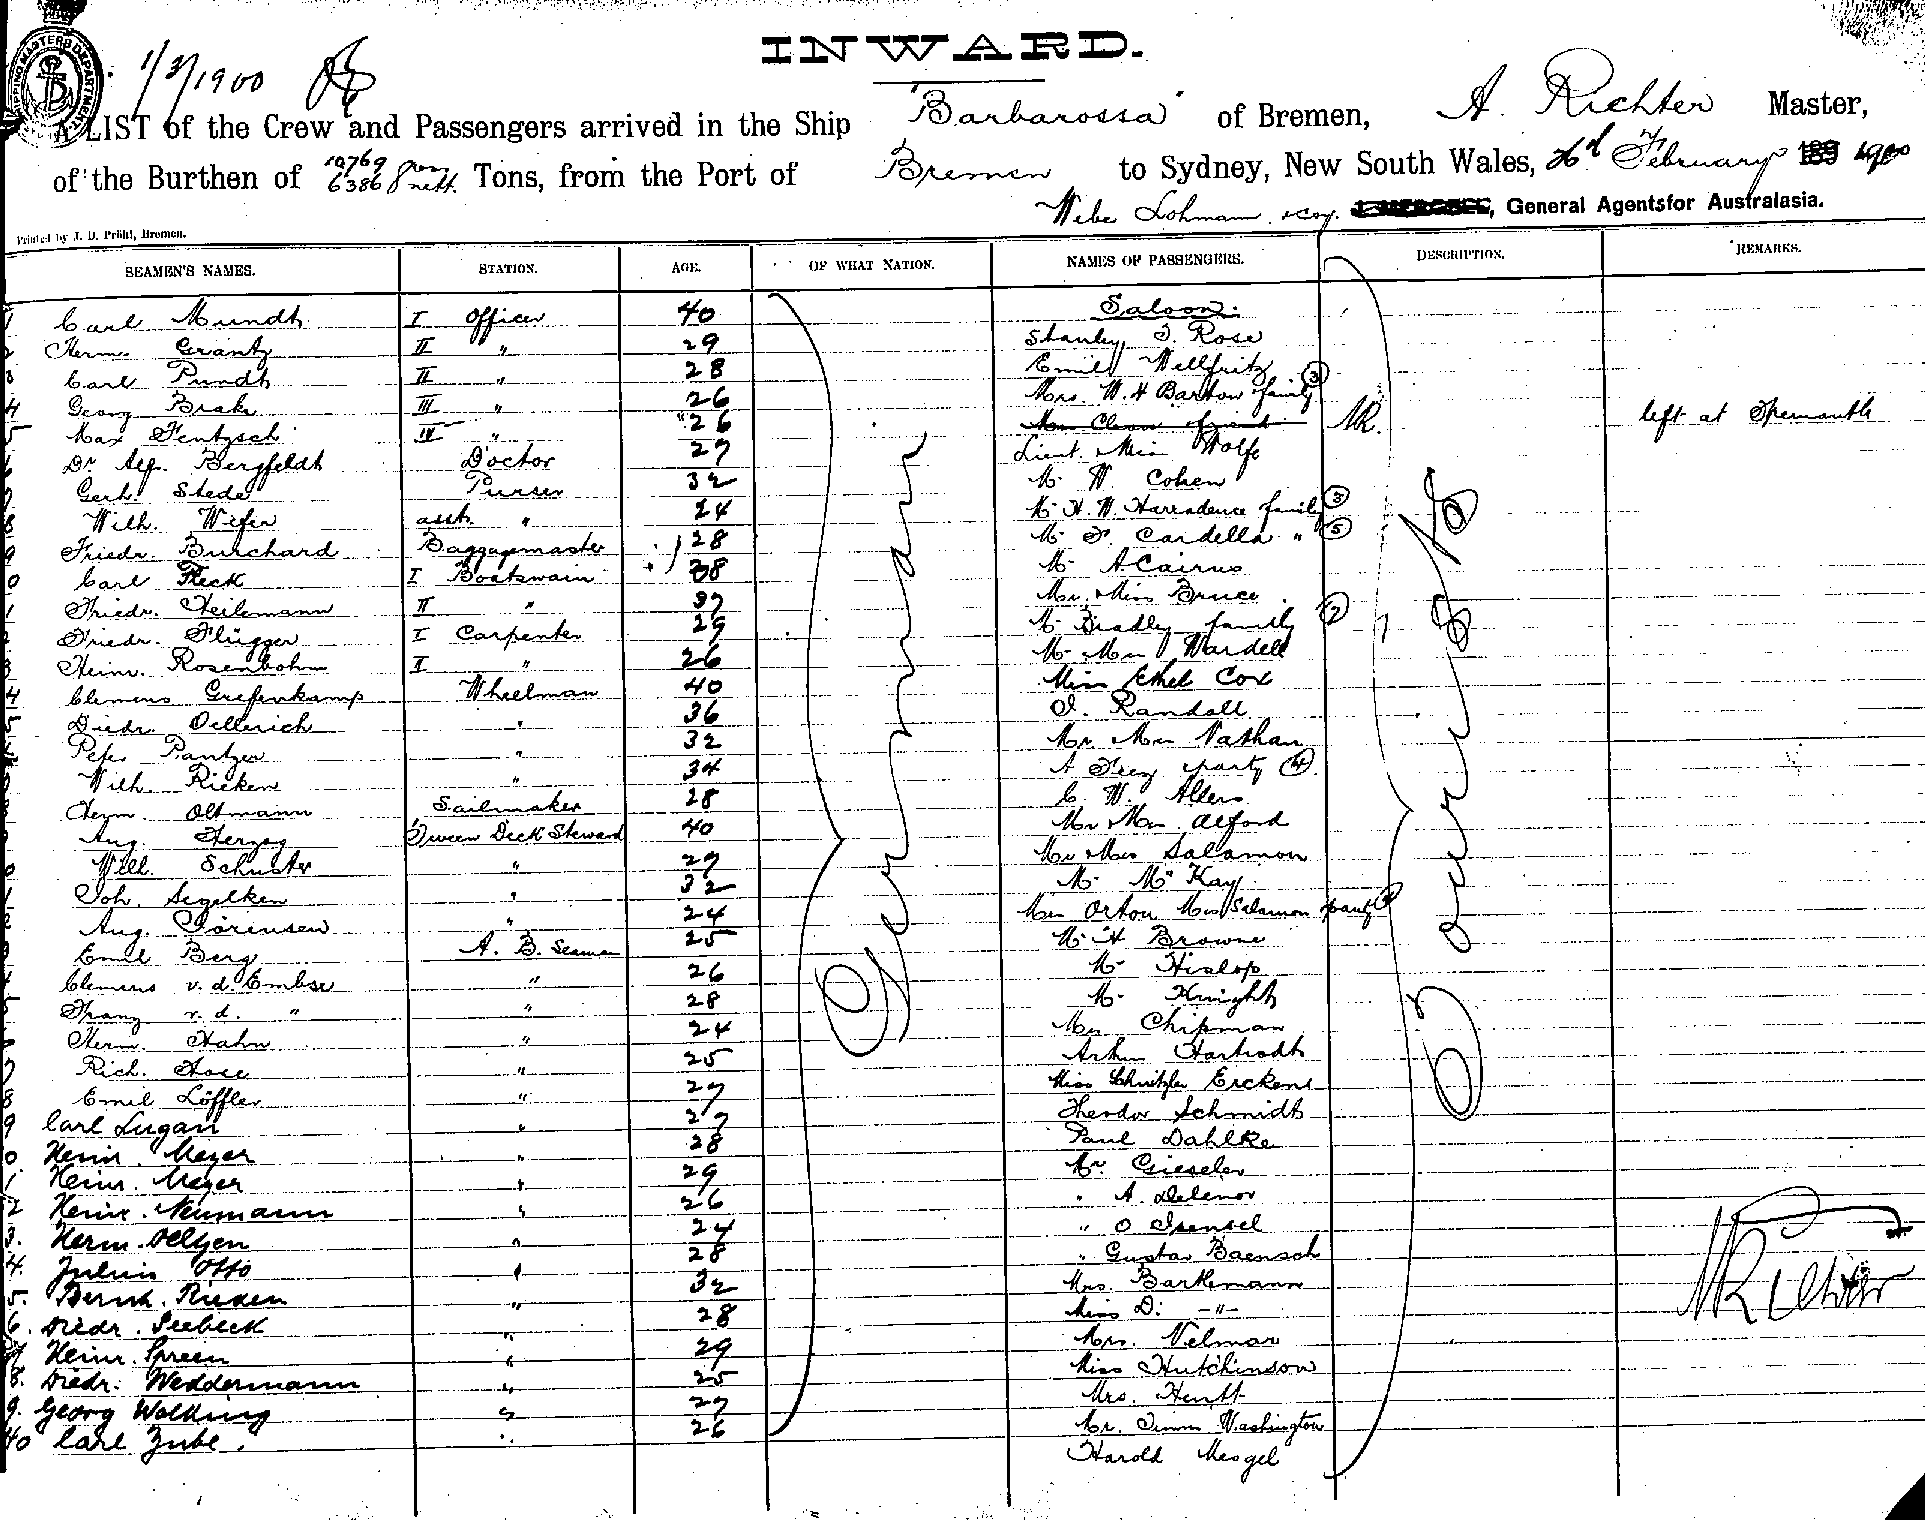 INWARD.
1/3/1900
A LIST of the Crew and Passengers arrived in the Ship "Barbarossa" of Bremen, A. Richter Master,
of the Burthen of 10769 gross 6386 nett. Tons, from the Port of Bremen to Sydney, New South Wales, February 189 1900
Weber Lohmann & Coy. General Agents for Australasia.
Printed by J. D. Prühl, Bremen.
SEAMEN'S NAMES. STATION. AGE. OF WHAT NATION. NAMES OF PASSENGERS. DESCRIPTION. REMARKS.
German
Tourists
Carl Mundt I Officer 40 Saloon.
Herm. Grantz II " 29 Stanley T. Rose
Carl Pundt II " 28 Emil Wellfritz
Georg Brake III " 26 Mrs. W. H. Bartow family (3)
Max Jentzsch IV " 26 left at Fremantle
Dr. Alf. Bergfeldt Doctor 27 Lieut. Wolfe
Gerh. Stede Purser 32 Mr W. Cohen
Wilh. Wefer asst. " 24 Mr H. W. Harradence family (3)
Friedr. Burchard Baggagemaster 28 Mr F. Cardella " (5)
Carl Fleck I Boatswain 38 Mr A Cairns
Friedr. Heilemann II " 37 Mr. Miss Bruce
Friedr. Flügger I Carpenter 29 Mr Bradley family (2)
Heinr. Rosenbohm II " 26 Mr Wardell
Clemens Grefenkamp Wheelman 40 Miss Ethel Cox
Diedr. Oellerich " 36 J. Randall
Peter Pantzer " 32 Mr. Mrs Nathan
Wilh. Ricken " 34 A Frey party (4)
Herm. Oltmann Sailmaker 28 C. W. Allers
Aug. Herzog Tween Deck Steward 40 Mr Mrs Alford
Wilh. Schuster " 27 Mr Mrs Salamon
Joh. Segelken " 32 Mr McKay
Aug. Sörensen " 24 Mrs Orton Mrs Salamon party
Emil Berg A. B. Seaman 25 Mr H Browne
Clemens v. d. Embse " 26 Mr Hislop
Franz v. d. " " 28 Mr Knight
Herm. Hahn " 24 Mrs Chipman
Rich. Hose " 25 Arthur Hartrodt
Emil Löffler " 27 Miss Schnitzler Erckens
Carl Lugan " 27 Theodor Schmidt
Heinr. Meyer " 28 Paul Dahlke
Heinr. Meyer " 29 Mr. Gieseler
Heinr. Neumann " 26 " A. Delenor
Herm. Oeltzen " 24 " O Isensel
Julius Otto " 28 " Gustav Baensch
Bernh. Rieken " 32 Mrs. Barkemann
Diedr. Seebeck " 28 Miss D. "
Heinr. Spreen " 29 Mrs. Velmar
Diedr. Weddermann " 25 Miss Hutchinson
Georg Walking " 27 Mrs. Hentt
40 Carl Zube. " 26 Mr. Timm Washington
Harold Mesgel
A Richter